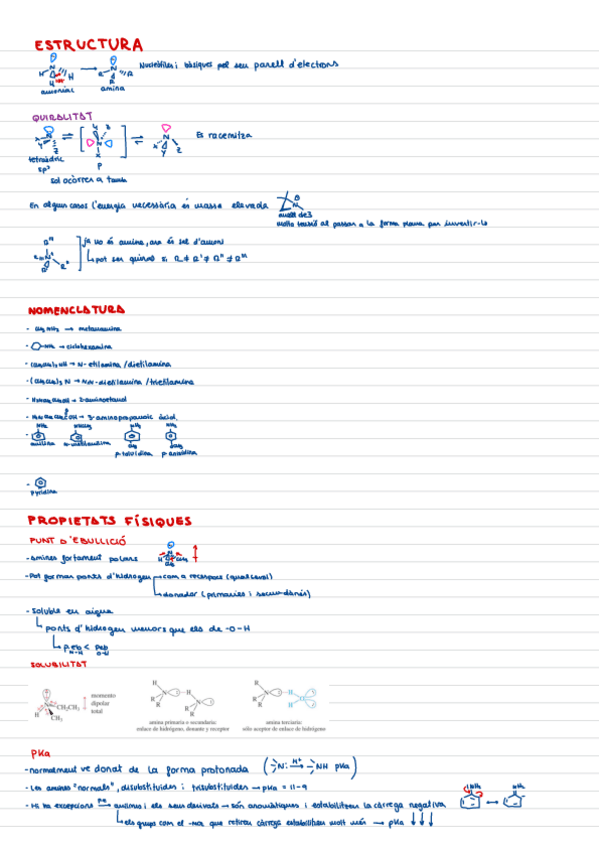 ESTRUCTURA
N
H H
H
R R
R
Nucleòfiles i bàsiques pel seu parell d'electrons
amoníac
amina
QUIRALITAT
X Y Z
Es racemitza
tetraèdric
sp³
P
Sol ocòrrer a tamb
En alguns casos l'energia necessària és massa elevada
anell de 3
molta tensió al passar a la forma plana per invertir-lo
ja no és amina, ara és sal d'amoni
pot ser quiral si R ≠ R' ≠ R'' ≠ R'''
NOMENCLATURA
- CH₃NH₂ → metanamina
- NH₂ → ciclohexamina
- (CH₃CH₂)₂NH → N-etilamina / dietilamina
- (CH₃CH₂)₃N → N,N-dietilamina / trietilamina
- → 2-aminoetanol
- → 3-aminopropanoic àcid.
NH₂ NHCH₃ NH₂ NH₂
anilina N-metilanilina
p-toluidina p-anisidina
- pyridina
PROPIETATS FÍSIQUES
PUNT D'EBULLICIÓ
- amines fortament polars
- Pot formar ponts d'hidrogen com a receptors (qualsevol)
donador (primàries i secundàries)
- Soluble en aigua
ponts d'hidrogen menors que els de -O-H
p.eb < p.eb
N-H O-H
SOLUBILITAT
momento
dipolar
total
CH₂CH₃
H CH₃
amina primaria o secundaria:
enlace de hidrógeno, donante y receptor
amina terciaria:
sólo aceptor de enlace de hidrógeno
PKa
- normalment ve donat de la forma protonada ( N: H⁺→ NH pKa)
- Les amines "normals", disubstituïdes i trisubstituïdes → pKa = 11-9
- Hi ha excepcions anilina i els seus derivats → són aromàtiques i estabilitzen la càrrega negativa
els grups com el -NO₂ que retiren càrrega estabilitzen molt més → pKa ↓↓↓